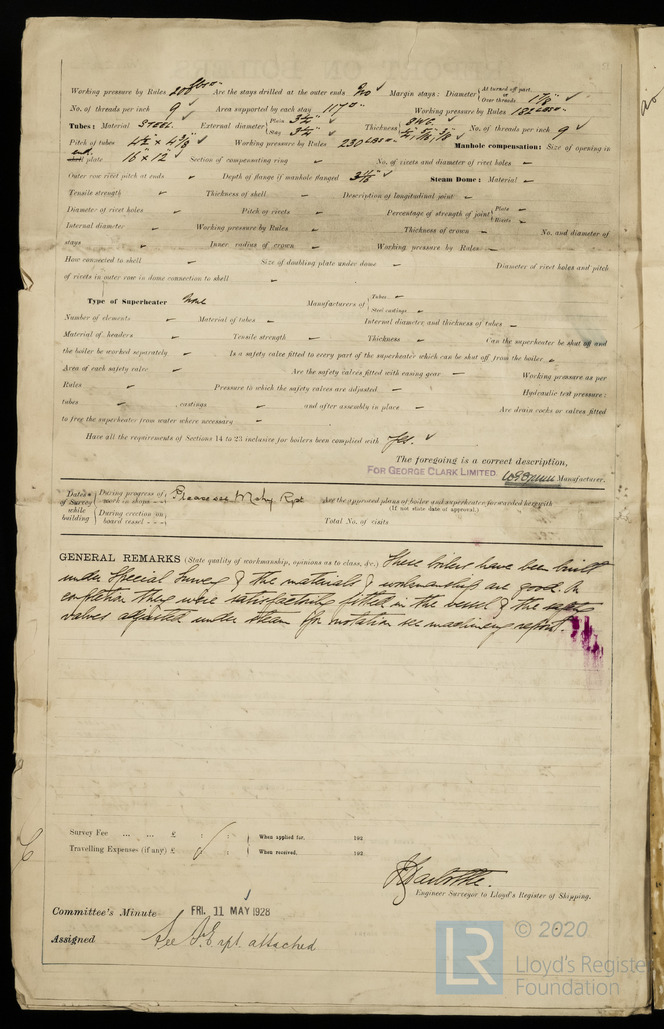 Working pressure by Rules 208 lbs Are the stays drilled at the outer ends No Margin stays: Diameter { At turned off part, or Over threads 1 7/8"
No. of threads per inch 9 Area supported by each stay 117 Working pressure by Rules
Tubes: Material Steel External diameter { Plain 3 1/4" Stay 3 1/4" Thickness { 8 W.G. No. of threads per inch 9
Pitch of tubes Working pressure by Rules 230 lbs Manhole compensation: Size of opening in
end shell plate 16" x 12" Section of compensating ring - No. of rivets and diameter of rivet holes -
Outer row rivet pitch at ends - Depth of flange if manhole flanged Steam Dome: Material -
Tensile strength - Thickness of shell - Description of longitudinal joint -
Diameter of rivet holes - Pitch of rivets - Percentage of strength of joint { Plate - Rivets -
Internal diameter - Working pressure by Rules - Thickness of crown - No. and diameter of
stays - Inner radius of crown - Working pressure by Rules -
How connected to shell - Size of doubling plate under dome - Diameter of rivet holes and pitch
of rivets in outer row in dome connection to shell -
Type of Superheater None Manufacturers of { Tubes - Steel castings -
Number of elements - Material of tubes - Internal diameter and thickness of tubes -
Material of headers - Tensile strength - Thickness - Can the superheater be shut off and
the boiler be worked separately - Is a safety valve fitted to every part of the superheater which can be shut off from the boiler -
Area of each safety valve - Are the safety valves fitted with easing gear - Working pressure as per
Rules - Pressure to which the safety valves are adjusted - Hydraulic test pressure:
tubes - castings - and after assembly in place - Are drain cocks or valves fitted
to free the superheater from water where necessary -
Have all the requirements of Sections 14 to 23 inclusive for boilers been complied with Yes
The foregoing is a correct description,
FOR GEORGE CLARK LIMITED. Manufacturer.
Dates of Survey while building { During progress of work in shops - - Please see Mchy. Rpt Are the approved plans of boiler and superheater forwarded herewith
(If not state date of approval.)
{ During erection on board vessel - - - Total No. of visits
GENERAL REMARKS (State quality of workmanship, opinions as to class, &c.) These boilers have been built
under Special Survey & the materials & workmanship are good. On
completion they were satisfactorily fitted in the vessel & the safety
valves adjusted under steam for notation see machinery report.
Survey Fee ... ... £ : : When applied for, 192
Travelling Expenses (if any) £ : : When received, 192
Engineer Surveyor to Lloyd's Register of Shipping.
Committee's Minute FRI. 11 MAY 1928
Assigned See F.E. rpt. attached
LR © 2020
Lloyd's Register
Foundation